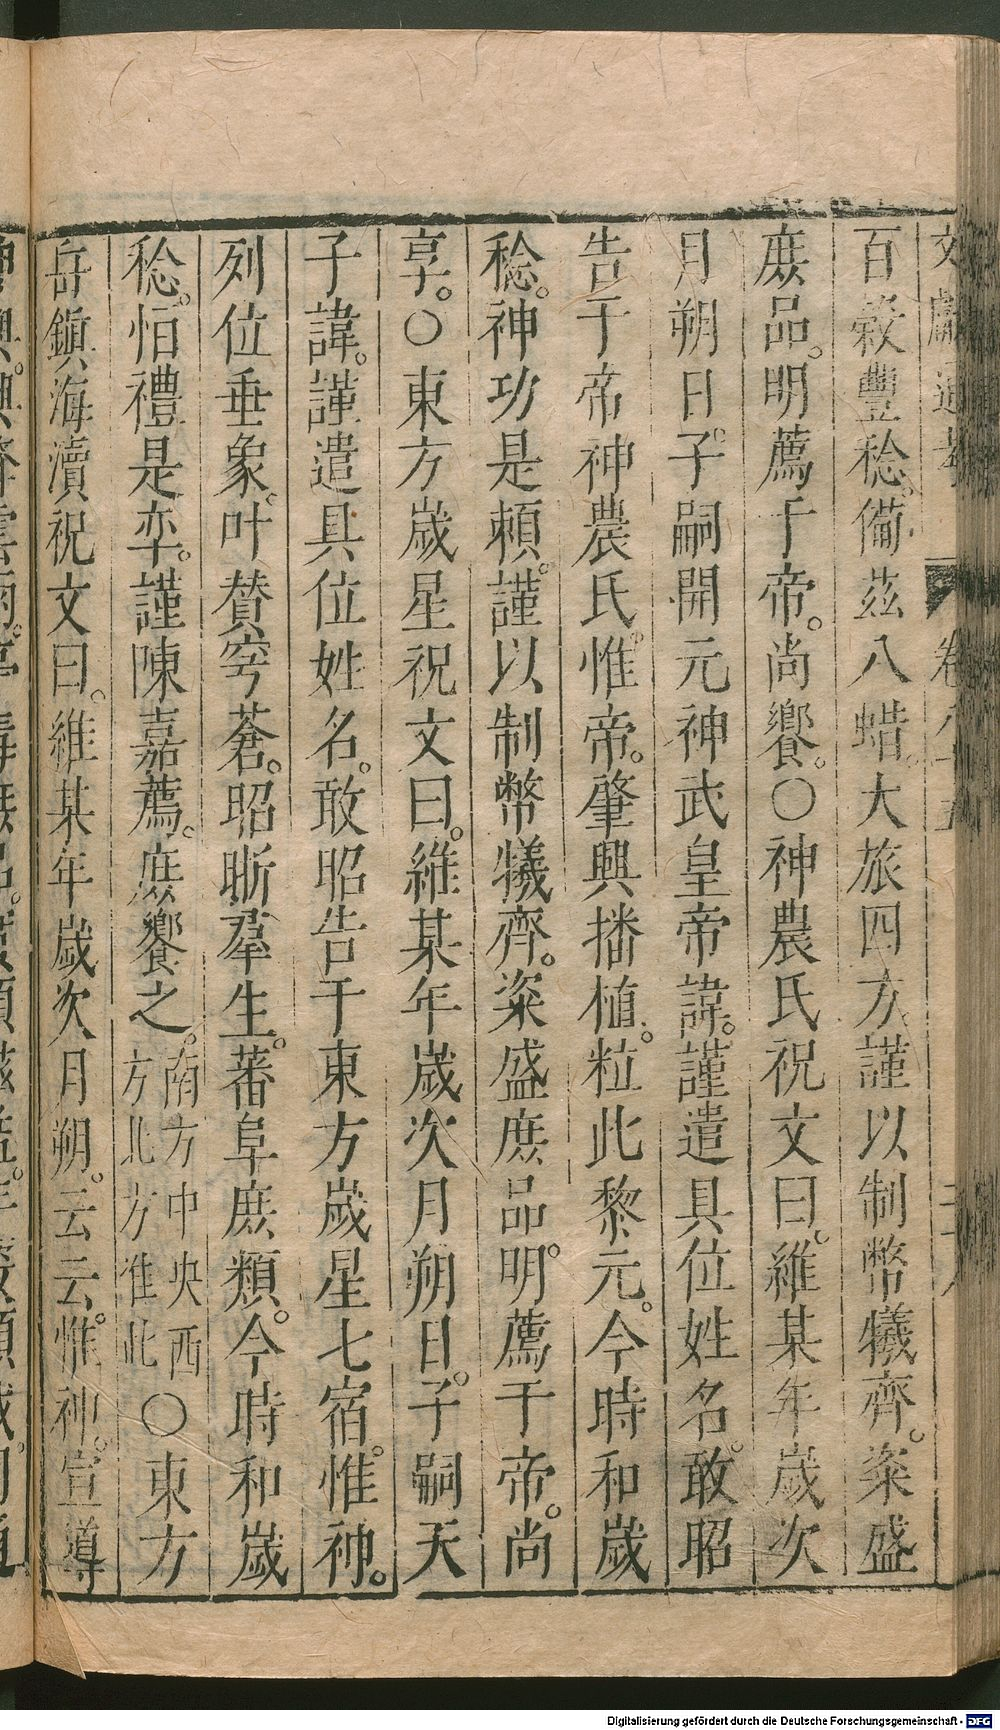 文獻通考 卷八十五
百穀豐稔。備茲八蜡。大旅四方謹以制幣犧齊。粢盛
庶品。明薦于帝。尚饗。〇神農氏祝文曰。維某年歲次
月朔日。子嗣開元神武皇帝諱。謹遣具位姓名。敢昭
告于帝神農氏。惟帝。肇興播植。粒此黎元。今時和歲
稔。神功是賴。謹以制幣犧齊。粢盛庶品。明薦于帝。尚
享。〇東方歲星祝文曰。維某年歲次月朔日。子嗣天
子諱。謹遣具位姓名。敢昭告于東方歲星七宿。惟神。
列位垂象。叶贊穹蒼。昭晣羣生。蕃阜庶類。今時和歲
稔。怕禮是率。謹陳嘉薦。庶饗之。南方中央西方北方准此〇東方
岳鎭海瀆祝文曰。維某年歲次月朔。云云。惟神。宣導
Digitalisierung gefördert durch die Deutsche Forschungsgemeinschaft - DFG